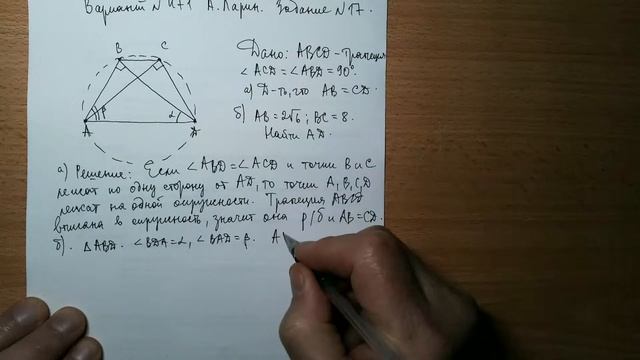 Вариант №471 А. Ларин. Задание №17.
B C
β α
A D
Дано: ABCD - трапеция
∠ACD = ∠ABD = 90°.
а) Д-ть, что AB = CD.
б) AB = 2√6; BC = 8.
Найти AD.
а) Решение: Если ∠ABD = ∠ACD и точки B и C
лежат по одну сторону от AD, то точки A, B, C, D
лежат на одной окружности. Трапеция ABCD
вписана в окружность, значит она р/б и AB = CD.
б). △ABD. ∠BDA = α, ∠BAD = β. A